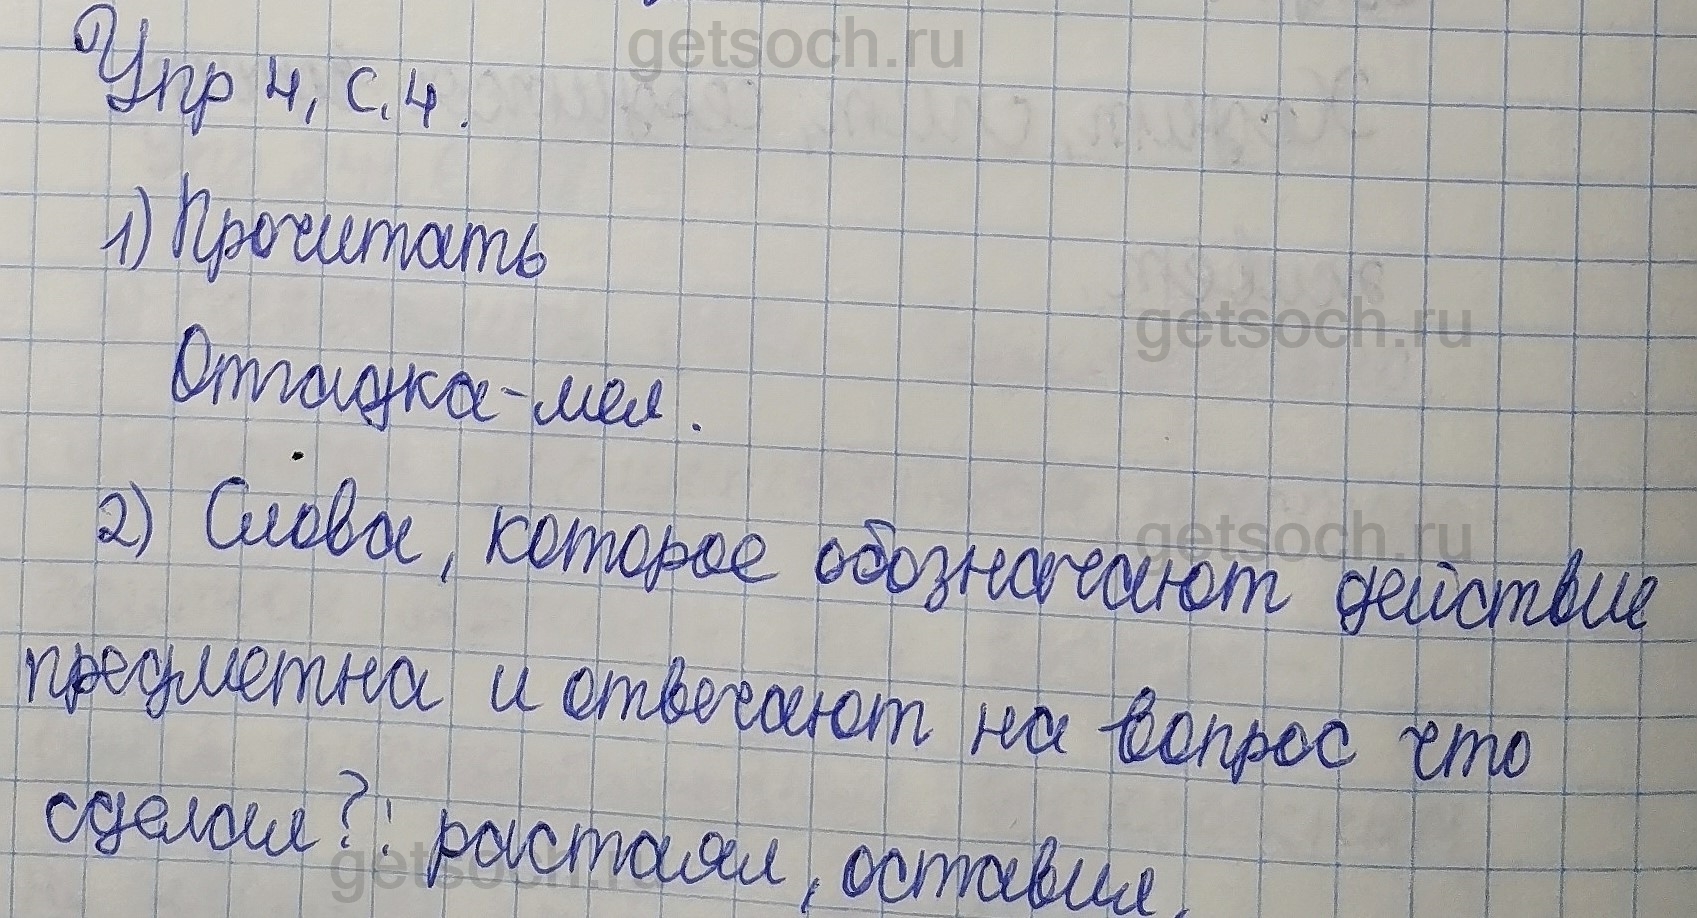 getsoch.ru
Упр 4, с.4.
1) Прочитать
getsoch.ru
Отгадка-мел.
2) Слова, которое обозначают действие
getsoch.ru
предметна и отвечают на вопрос что
сделал?: растаял, оставил.
getsoch.ru